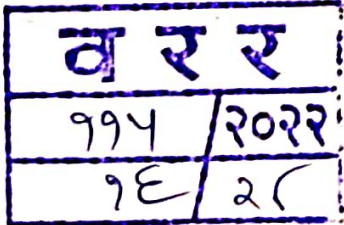 व र र
११५/२०२२
१६/२८